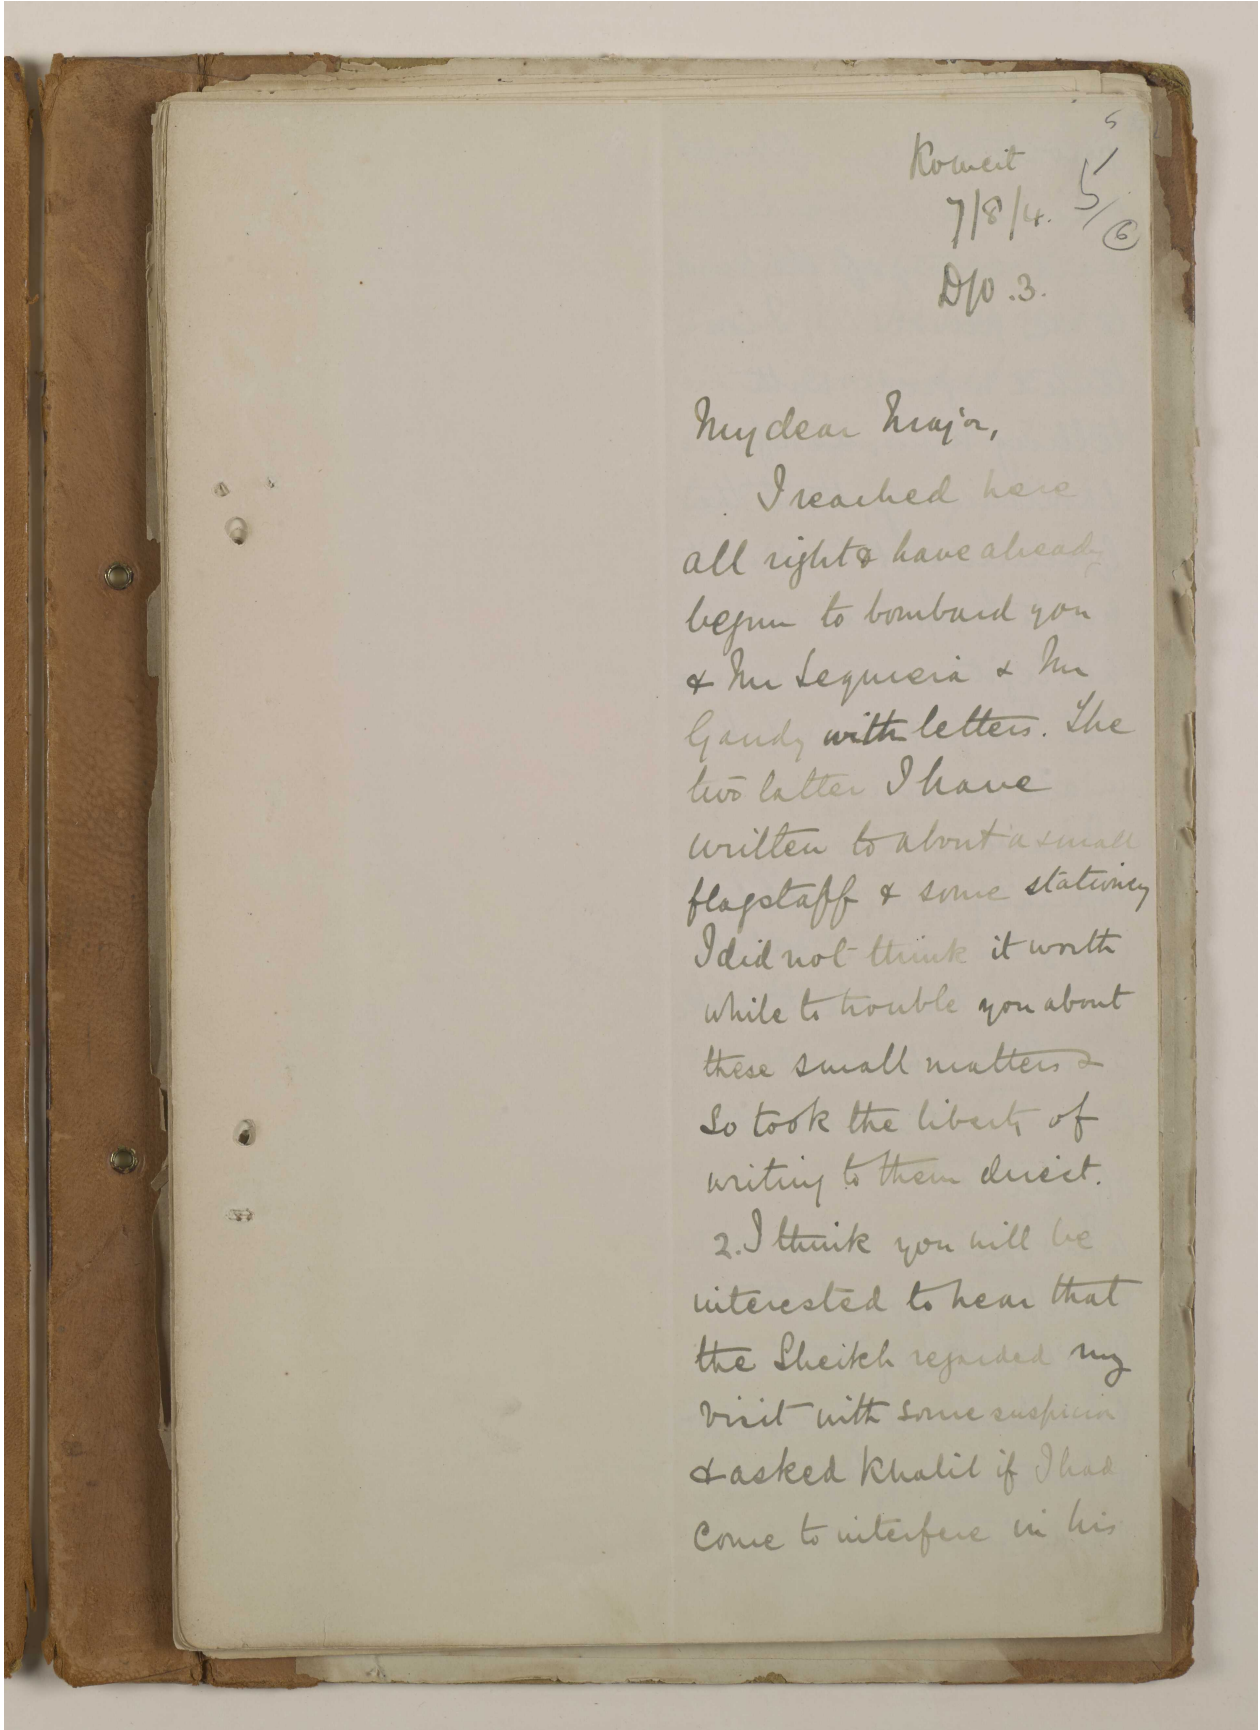 5
Koweit
5/
6
7/8/4.
D/O .3.
My dear Major,
I reached here
all right & have already
begun to bombard you
& Mr Sequeira & Mr
Gandy with letters. The
two latter I have
written to about a small
flagstaff & some stationery
I did not think it worth
while to trouble you about
these small matters &
so took the liberty of
writing to them direct.
2. I think you will be
interested to hear that
the Sheikh regarded my
visit with some suspicion
& asked Khalil if I had
come to interfere in his